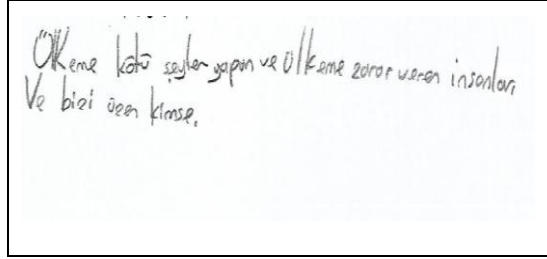 Ülkeme kötü şeyler yapan ve ülkeme zarar veren insanları
Ve bizi üzen kimse.